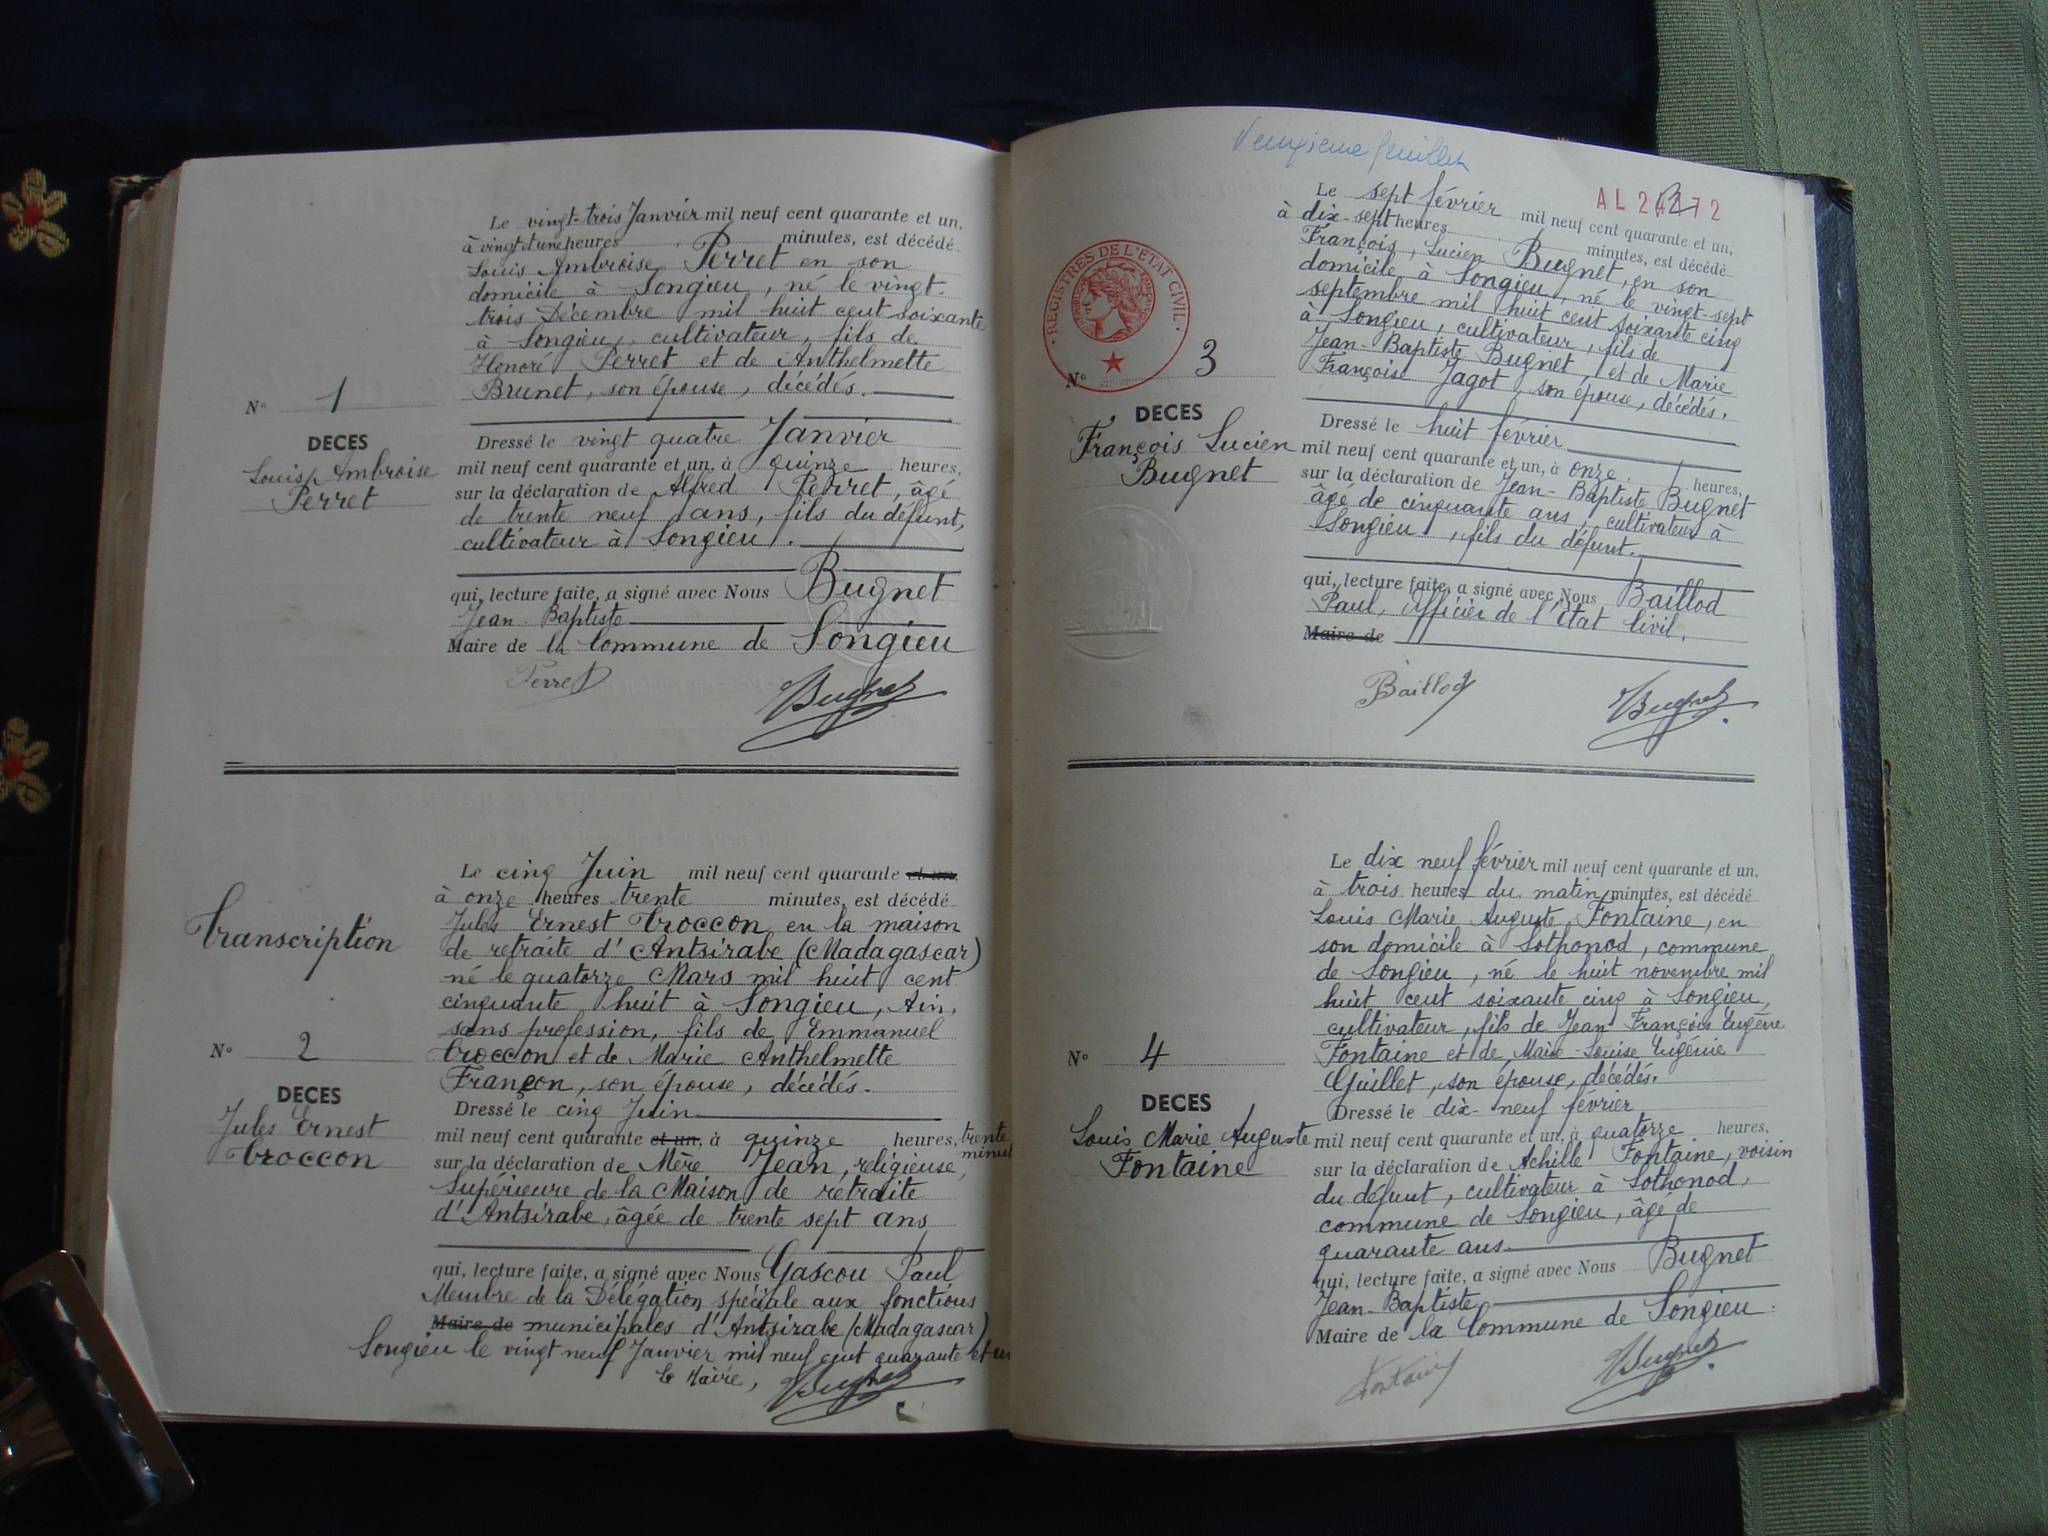 Le vingt-trois Janvier mil neuf cent quarante et un,
à vingt et une heures minutes, est décédé
Louis Ambroise Perret en son
domicile à Songieu, né le vingt-
trois Décembre mil huit cent soixante
à Songieu, cultivateur, fils de
Honoré Perret et de Anthelmette
Brunet, son épouse, décédés.
N° 1
DECES
Louis Ambroise
Perret
Dressé le vingt quatre Janvier
mil neuf cent quarante et un, à quinze heures,
sur la déclaration de Alfred Perret, âgé
de trente neuf ans, fils du défunt,
cultivateur à Songieu.
qui, lecture faite, a signé avec Nous Bugnet
Jean Baptiste
Maire de la Commune de Songieu
Perret
Bugnet
Transcription
N° 2
DECES
Jules Ernest
Troccon
Le cinq Juin mil neuf cent quarante et un,
à onze heures trente minutes, est décédé
Jules Ernest Troccon en la maison
de retraite d'Antsirabe (Madagascar)
né le quatorze Mars mil huit cent
cinquante huit à Songieu, Ain,
sans profession, fils de Emmanuel
Troccon et de Marie Anthelmette
Françon, son épouse, décédés.
Dressé le cinq Juin
mil neuf cent quarante et un, à quinze heures, trente minut
sur la déclaration de Mère Jean, religieuse,
Supérieure de la Maison de retraite
d'Antsirabe, âgée de trente sept ans
qui, lecture faite, a signé avec Nous Gascou Paul
Membre de la Délégation spéciale aux fonctions
Maire de municipales d'Antsirabe (Madagascar)
Songieu le vingt neuf Janvier mil neuf cent quarante et un
Le Maire, Bugnet
feuillet
AL 2 72
REGISTRES DE L'ETAT CIVIL
N° 3
DECES
François Lucien
Bugnet
Le sept février mil neuf cent quarante et un,
à dix-sept heures minutes, est décédé
François, Lucien Bugnet, en son
domicile à Songieu, né le vingt-sept
septembre mil huit cent soixante cinq
à Songieu, cultivateur, fils de
Jean-Baptiste Bugnet, et de Marie
Françoise Jagot, son épouse, décédés.
Dressé le huit février
mil neuf cent quarante et un, à onze heures,
sur la déclaration de Jean-Baptiste Bugnet
âgé de cinquante ans, cultivateur à
Songieu, fils du défunt.
qui, lecture faite, a signé avec Nous Baillod
Paul, Officier de l'Etat Civil.
Maire de
Baillod
Bugnet
N° 4
DECES
Louis Marie Auguste
Fontaine
Le dix neuf février mil neuf cent quarante et un,
à trois heures du matin minutes, est décédé
Louis Marie Auguste Fontaine, en
son domicile à Sothonod, commune
de Songieu, né le huit novembre mil
huit cent soixante cinq à Songieu,
cultivateur, fils de Jean François Eugène
Fontaine et de Marie-Louise Eugénie
Guillet, son épouse, décédés.
Dressé le dix-neuf février
mil neuf cent quarante et un, à quatorze heures,
sur la déclaration de Achille Fontaine, voisin
du défunt, cultivateur à Sothonod,
commune de Songieu, âgé de
quarante ans.
qui, lecture faite, a signé avec Nous Bugnet
Jean-Baptiste
Maire de la Commune de Songieu.
Fontaine
Bugnet